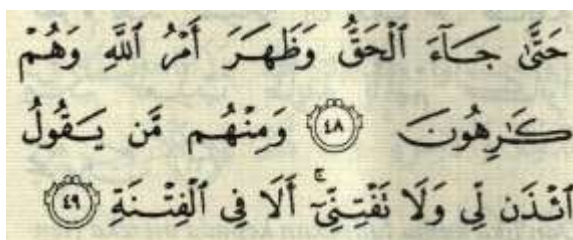 حَتَّىٰ جَآءَ ٱلْحَقُّ وَظَهَرَ أَمْرُ ٱللَّهِ وَهُمْ
كَـٰرِهُونَ ٤٨ وَمِنْهُم مَّن يَقُولُ
ٱئْذَن لِّي وَلَا تَفْتِنِّيٓ ۚ أَلَا فِي ٱلْفِتْنَةِ ٤٩